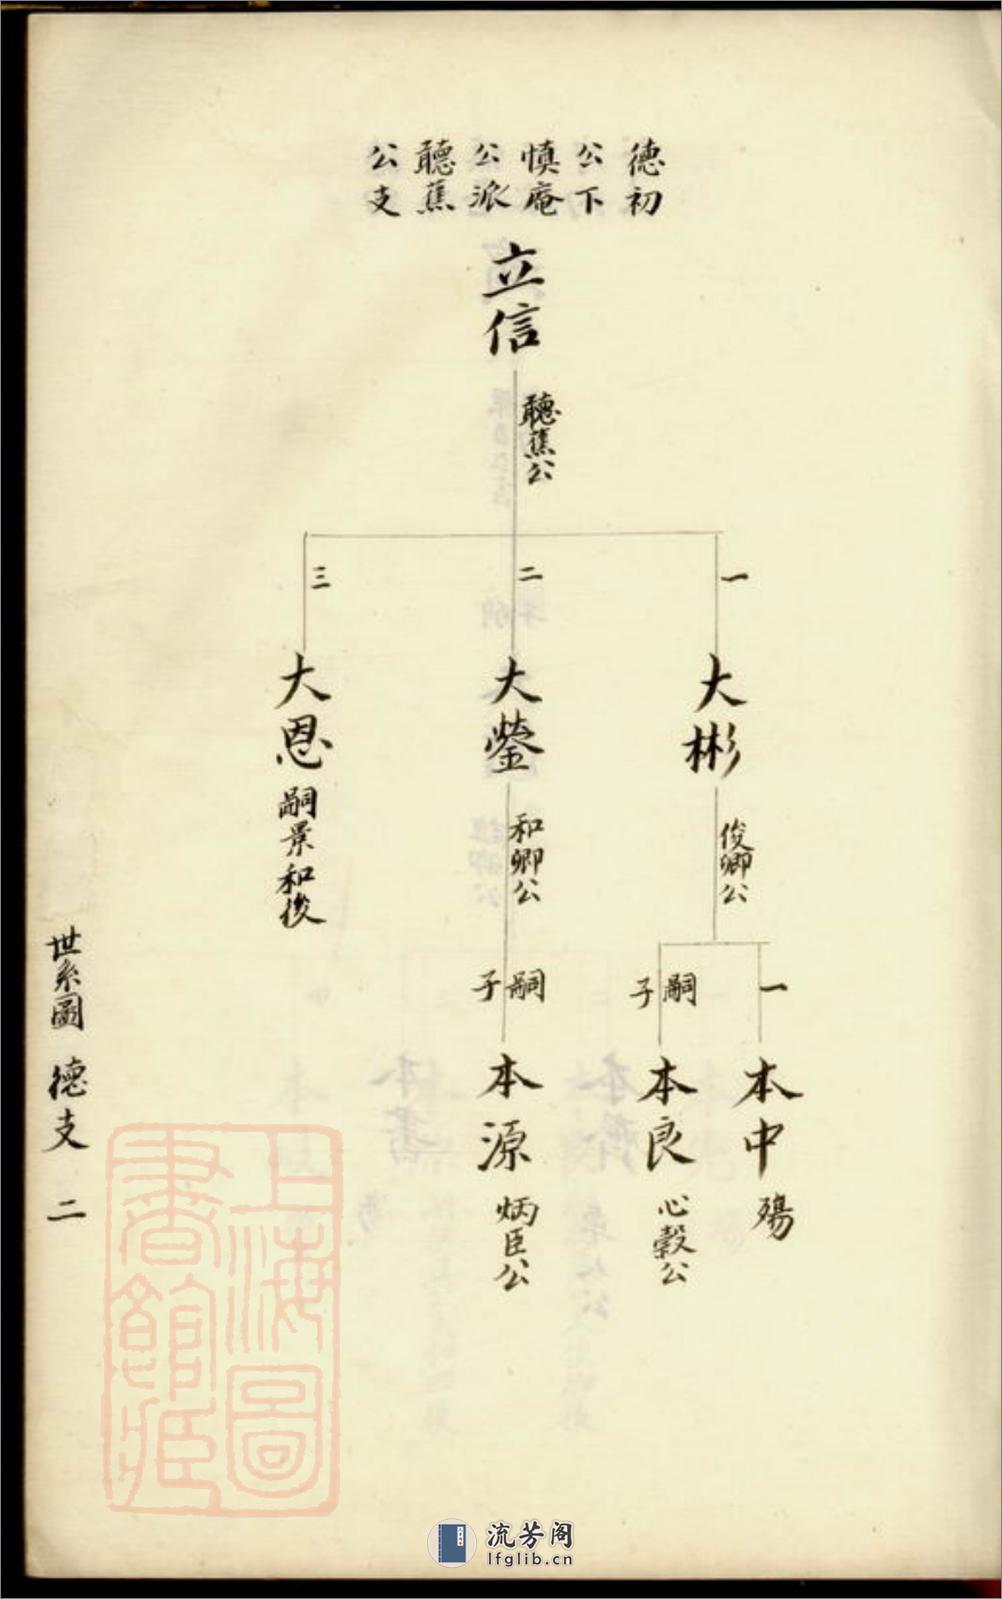 德初
公下
慎庵
公派
聽蕉
公支
立信
聽蕉公
一
大彬
俊卿公
二
大鎣
和卿公
三
大恩
嗣景和後
一
本中
殤
嗣子
本良
心穀公
嗣子
本源
炳臣公
世系圖 德支 二
上海圖
書館藏
流芳阁
lfglib.cn